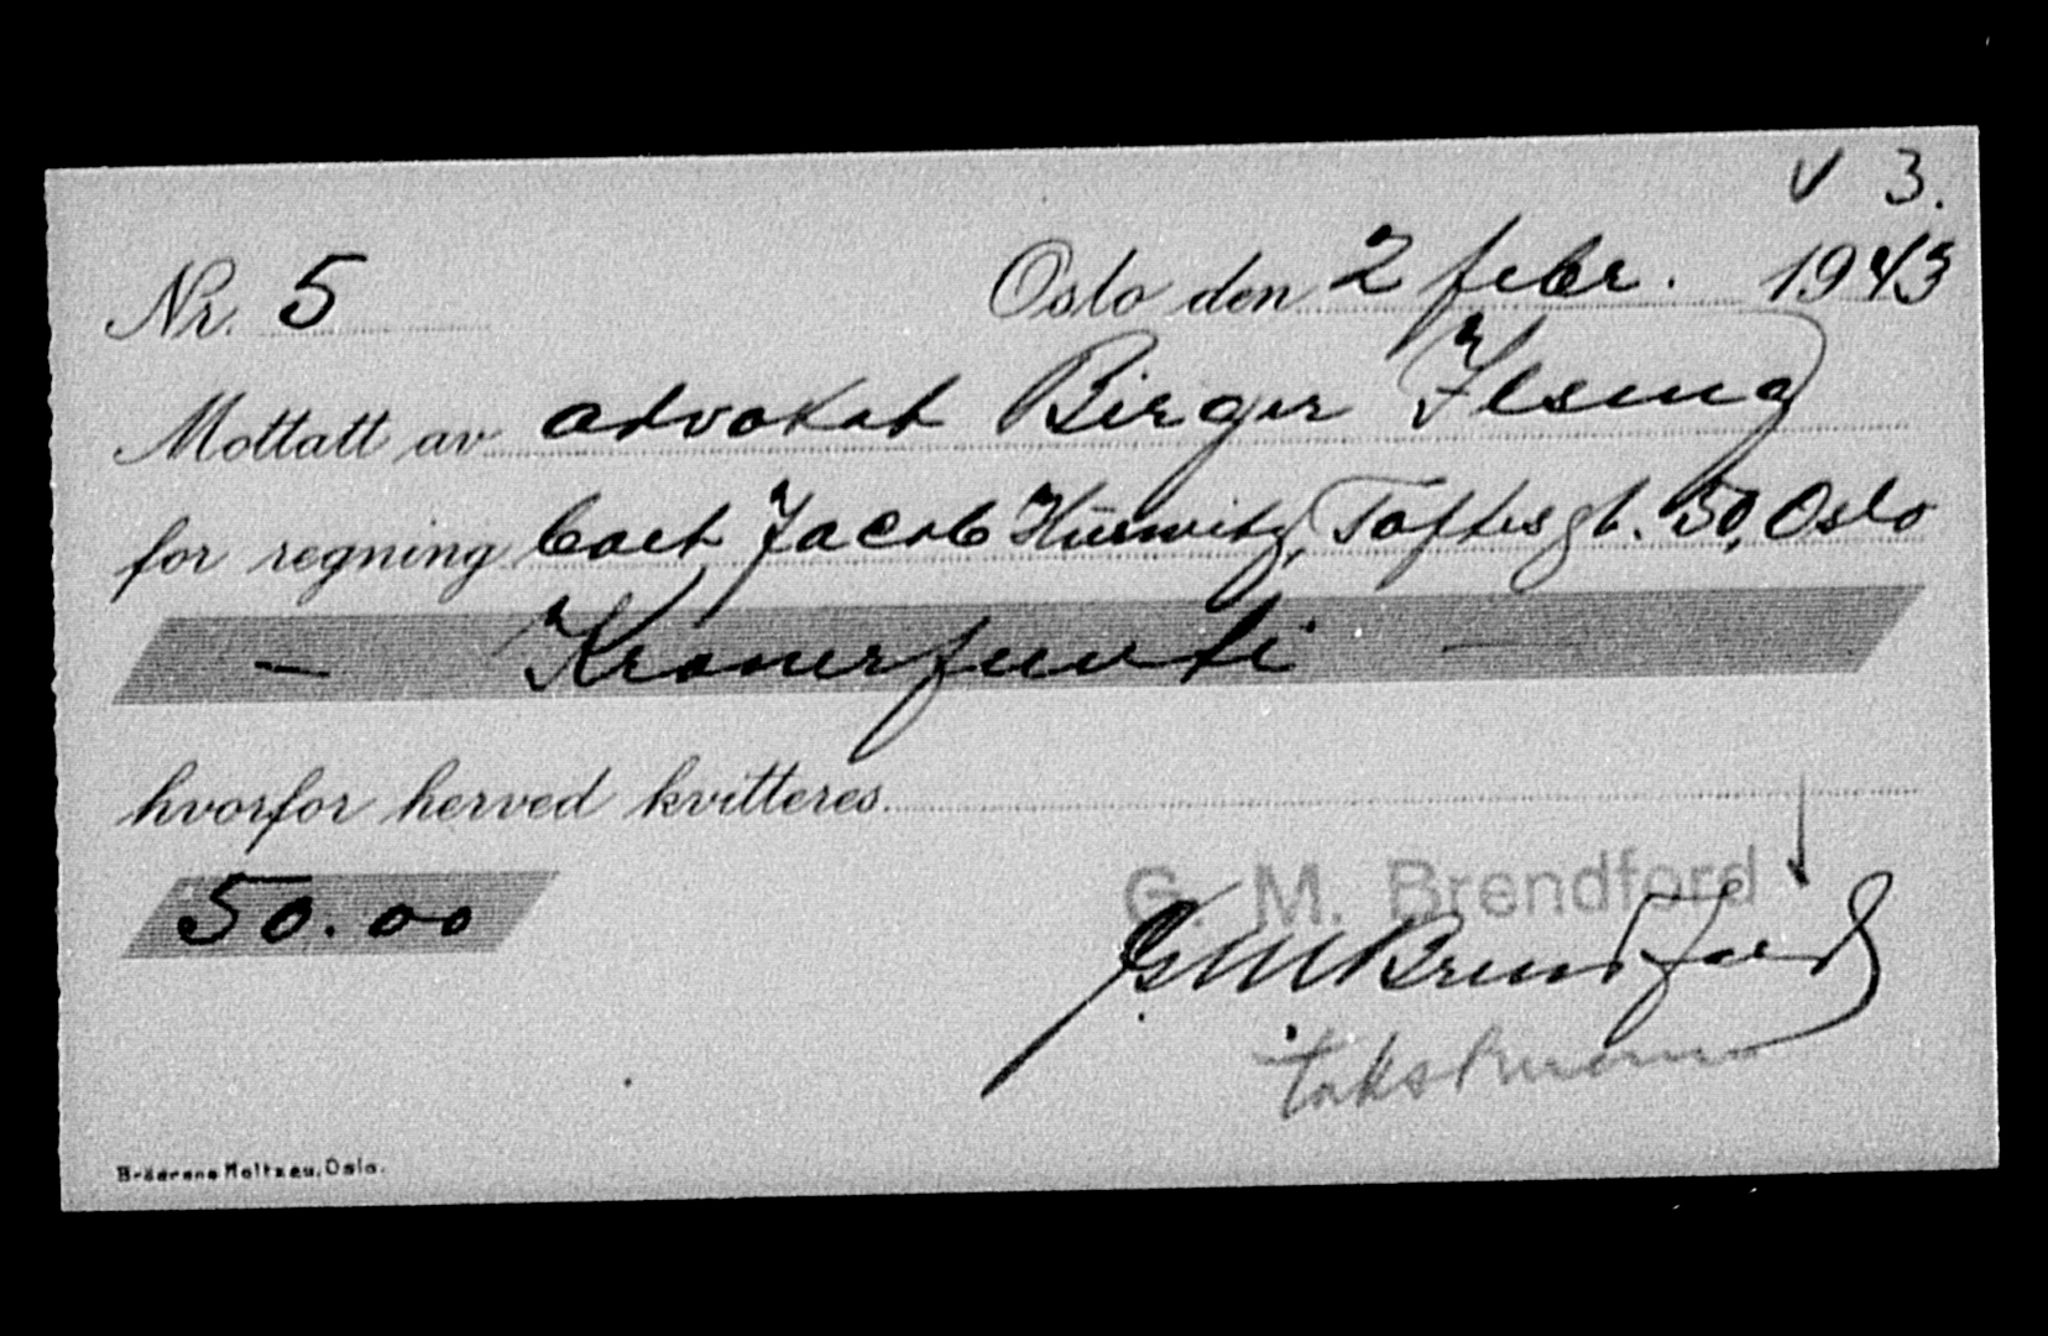 V 3.
Nr. 5 Oslo den 2 febr. 1943
Mottatt av advokat Birger
for regning boet Jacob Hurwitz, Toftesgt. 50, Oslo
- Kronerfemti -
hvorfor herved kvitteres
50.00
G. M. Brendford
G M Brendford
takstmann
Brödrene Moltzau, Oslo.